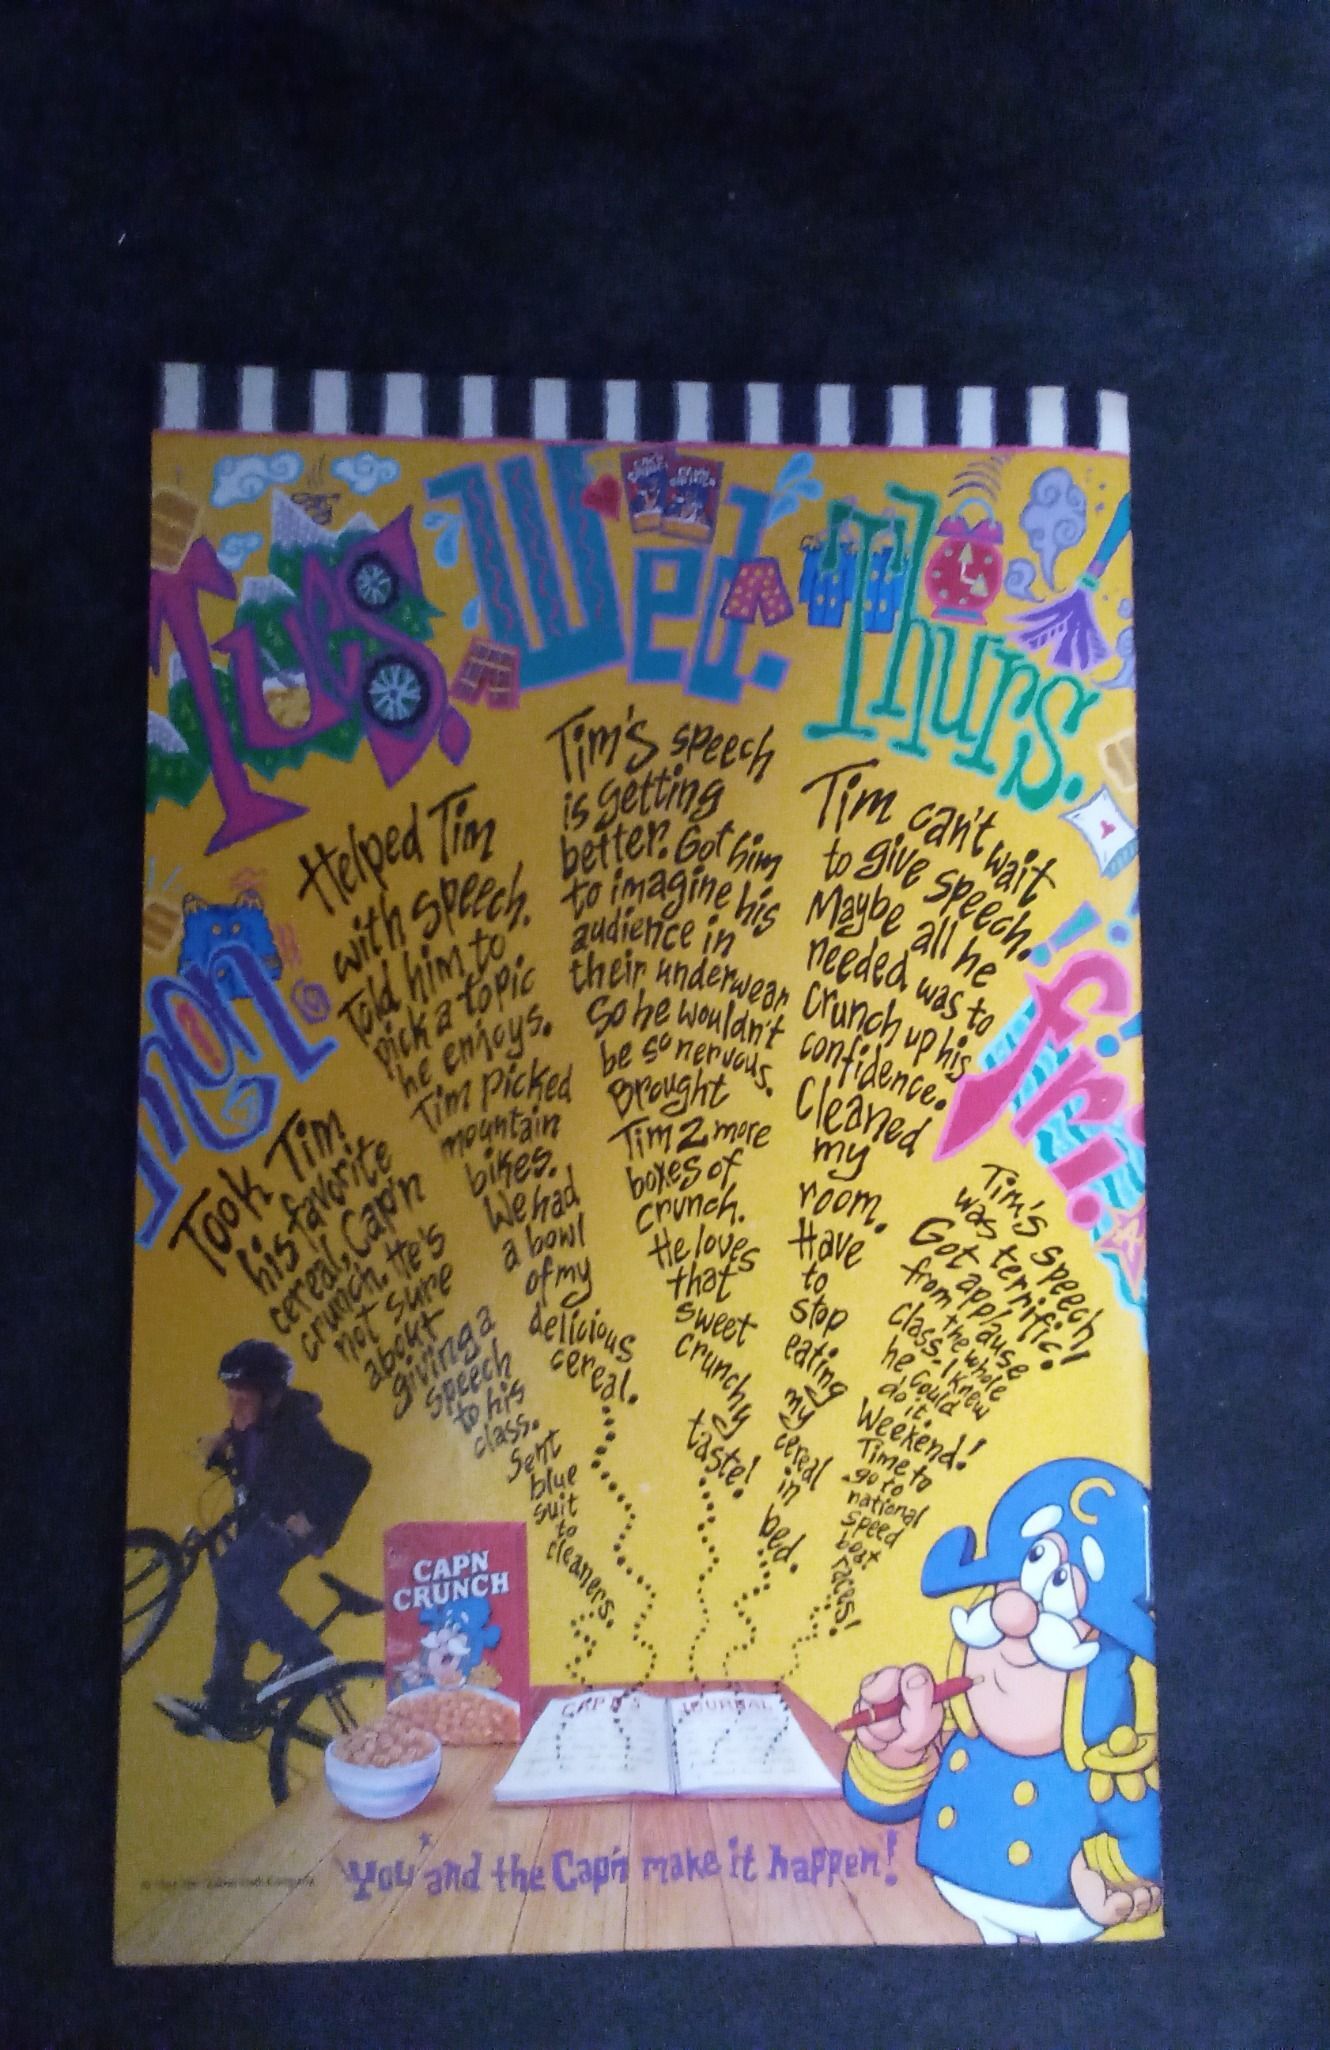 Mon.
Took Tim
his favorite
cereal, Cap'n
Crunch. He's
not sure
about
giving a
speech
to his
class.
Sent
blue
suit
to
cleaners.
Tues.
Helped Tim
with speech.
Told him to
pick a topic
he enjoys.
Tim picked
mountain
bikes.
We had
a bowl
of my
delicious
cereal.
Wed.
Tim's speech
is getting
better. Got him
to imagine his
audience in
their underwear
so he wouldn't
be so nervous.
Brought
Tim 2 more
boxes of
Crunch.
He loves
that
sweet
crunchy
taste!
Thurs.
Tim can't wait
to give speech.
Maybe all he
needed was to
Crunch up his
confidence.
Cleaned
my
room.
Have
to
stop
eating
my
cereal
in
bed.
Fri.
Tim's speech
was terrific!
Got applause
from the whole
class. I knew
he could
do it.
Weekend!
Time to
go to
national
speed
boat
races!
CAP'N
CRUNCH
CAP'N'S JOURNAL
You and the Cap'n make it happen!